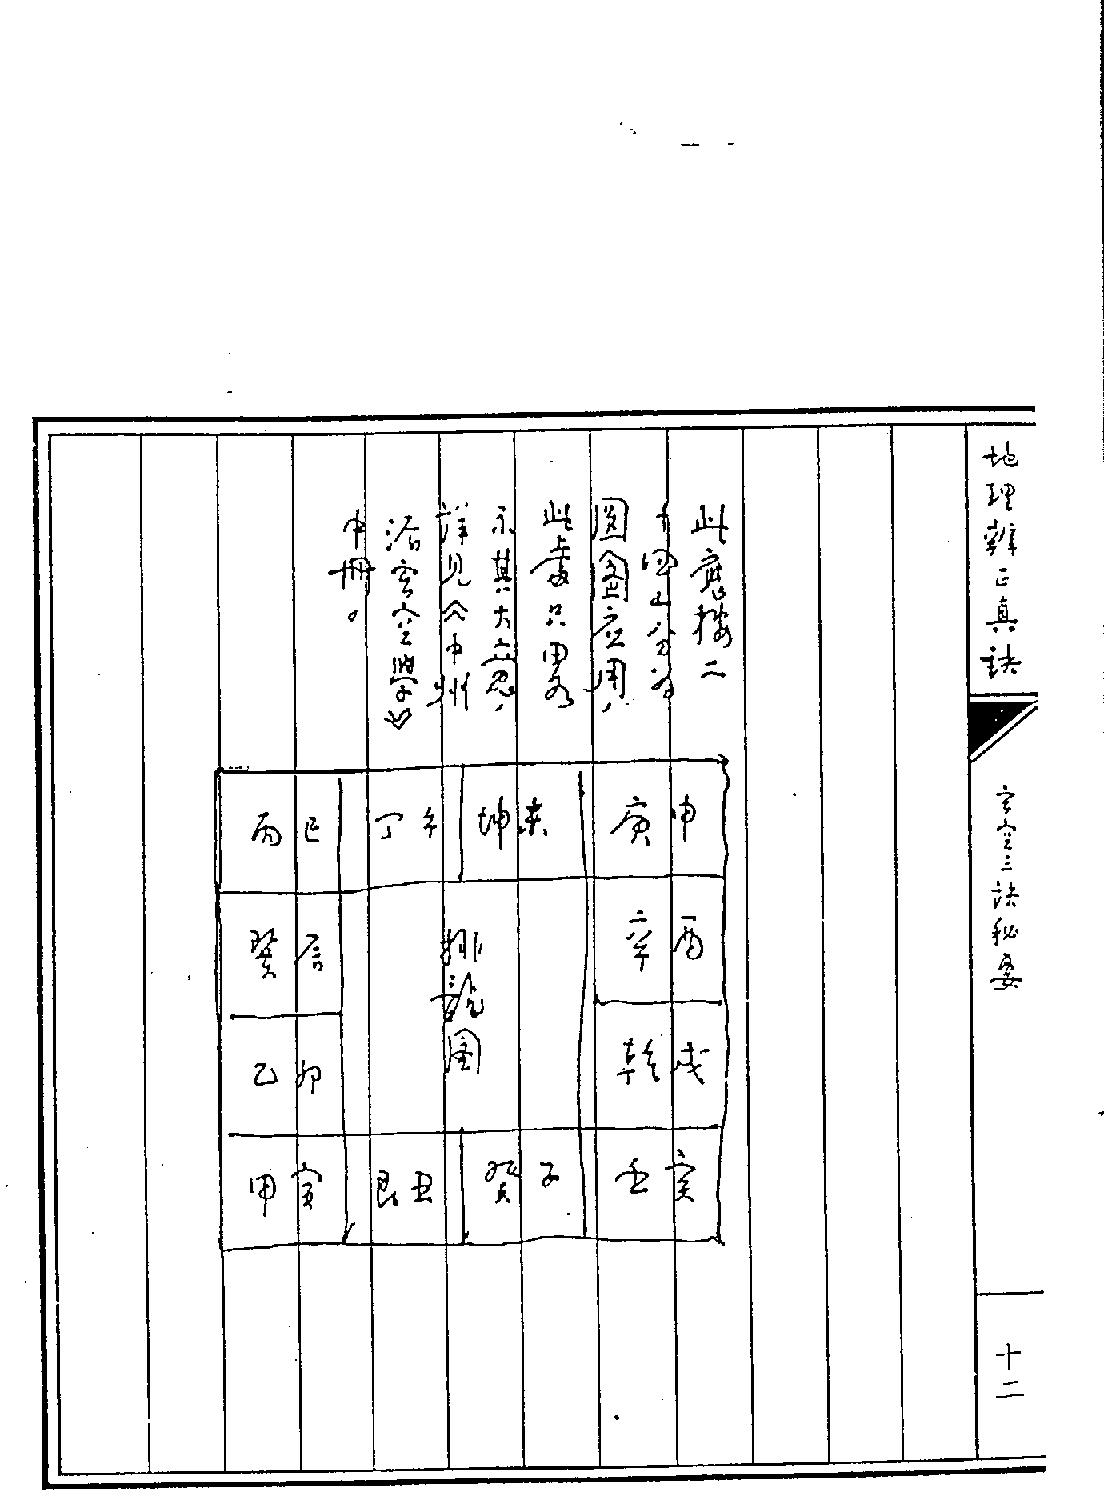 地理辨正真訣
玄空三訣秘要
十二
此應按二
十四山分為
圓圖应用，
此處只畧
示其大意，
詳見《中州
派玄空學》
中冊。
丙巳 丁午 坤未 庚申
巽辰 辛酉
排龍图
乙卯 乾戌
甲寅 艮丑 癸子 壬亥